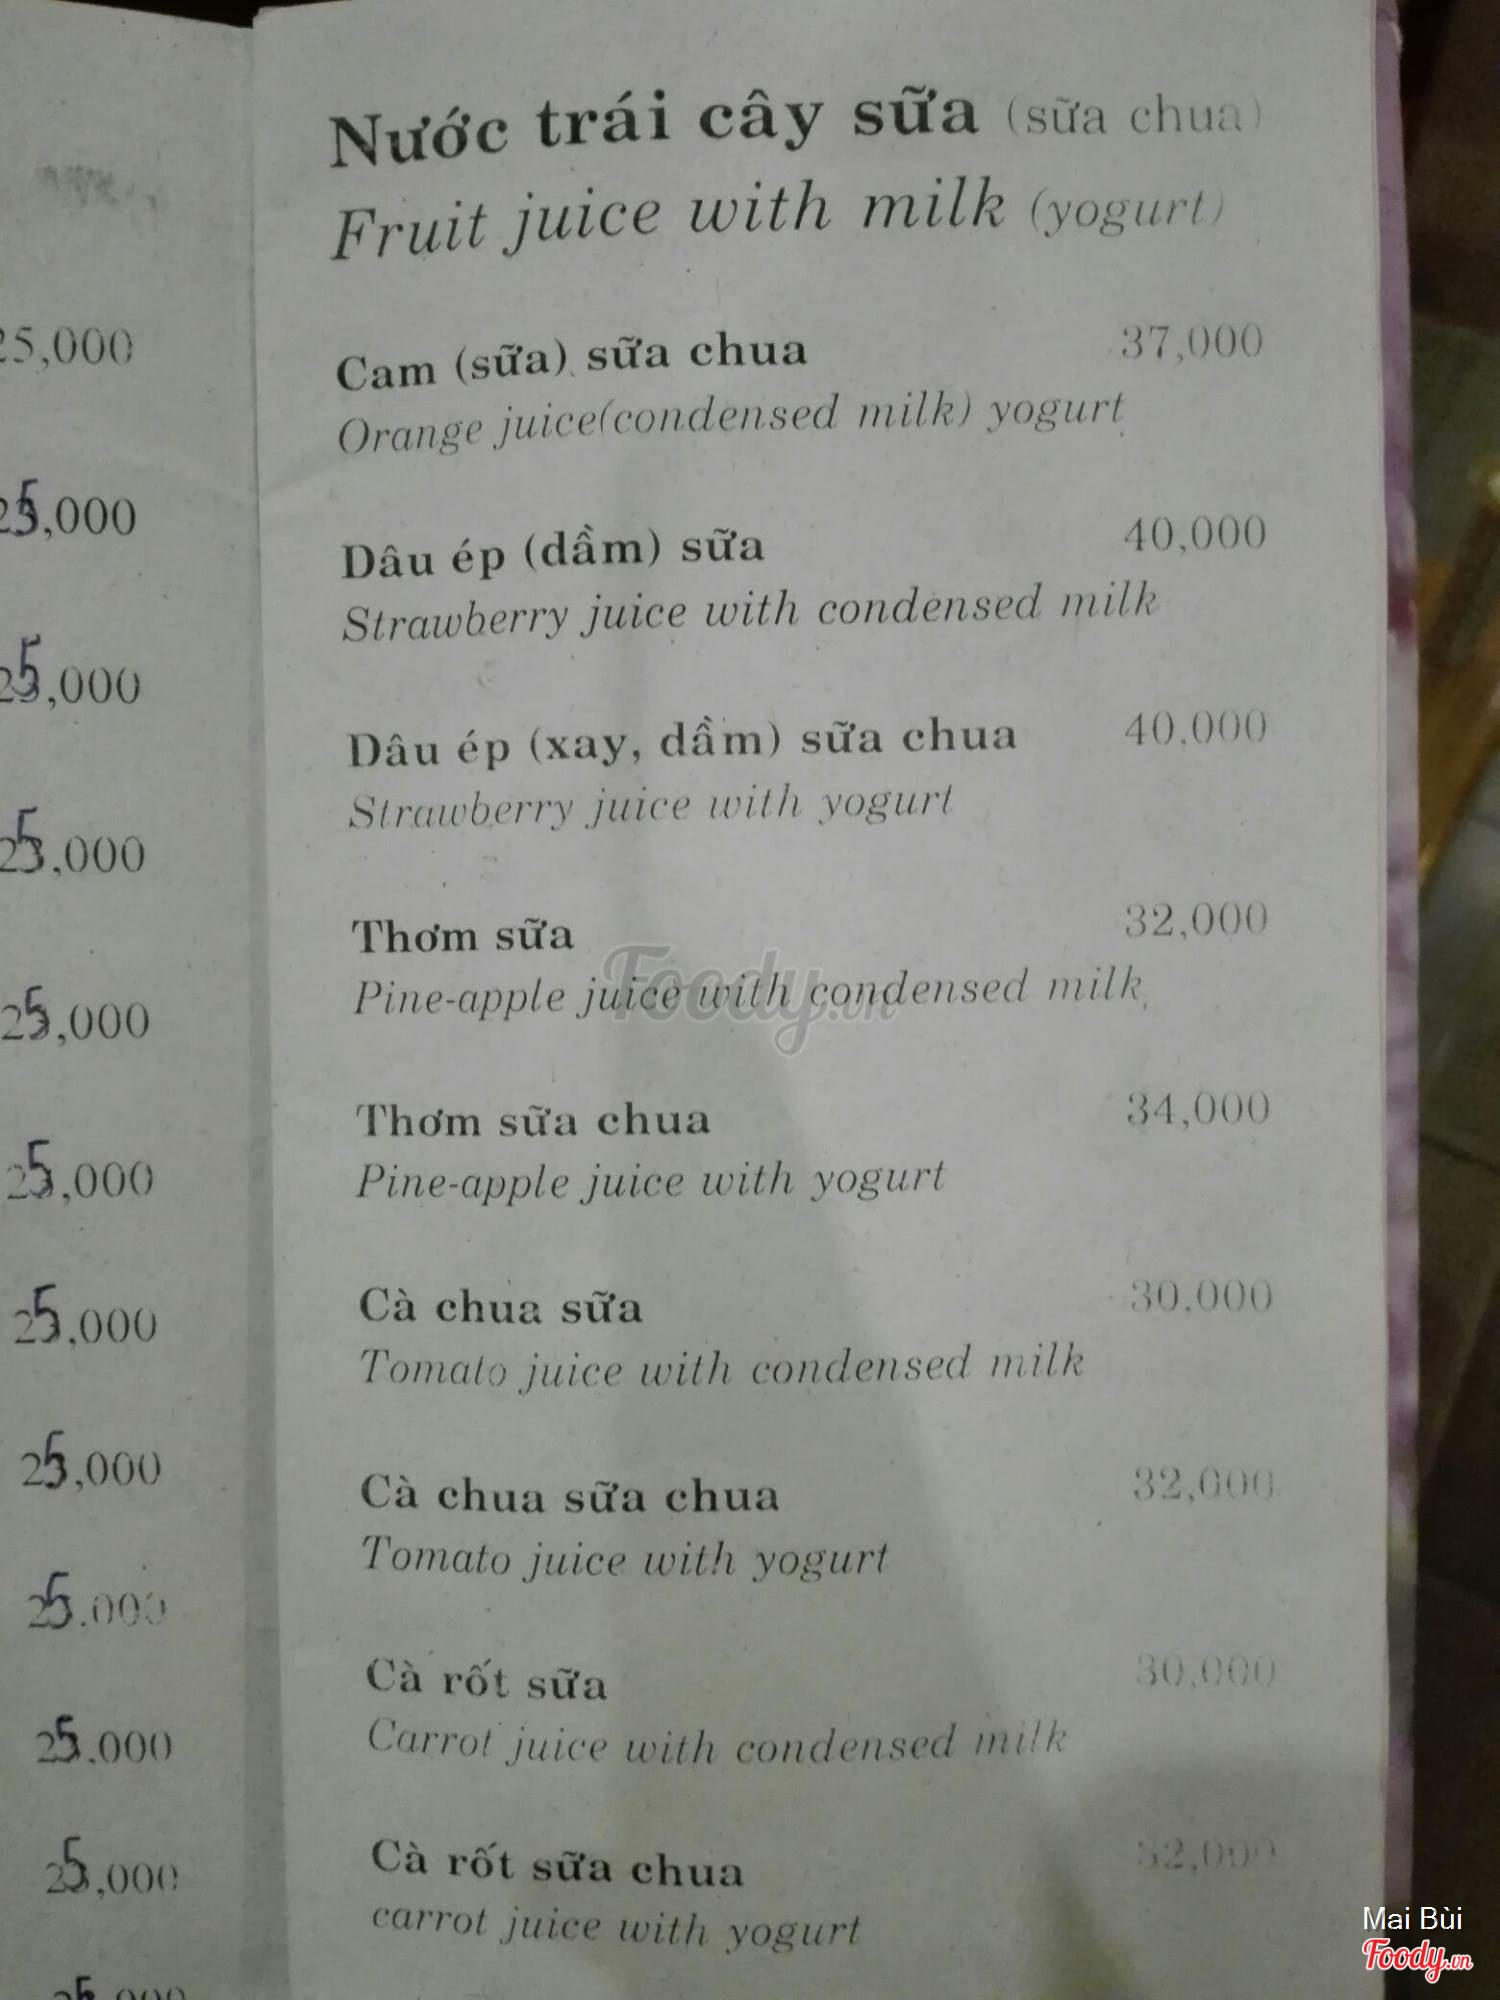 Nước trái cây sữa (sữa chua)
Fruit juice with milk (yogurt)
25,000
Cam (sữa) sữa chua 37,000
Orange juice(condensed milk) yogurt
25,000
Dâu ép (dầm) sữa 40,000
Strawberry juice with condensed milk
25,000
Dâu ép (xay, dầm) sữa chua 40.000
Strawberry juice with yogurt
25.000
Thơm sữa 32,000
Pine-apple juice with condensed milk
Foody.vn
25,000
Thơm sữa chua 34,000
Pine-apple juice with yogurt
25,000
Cà chua sữa 30.000
Tomato juice with condensed milk
25,000
Cà chua sữa chua 32,000
Tomato juice with yogurt
25,000
25.000
Cà rốt sữa 30,000
Carrot juice with condensed milk
25.000
Cà rốt sữa chua
carrot juice with yogurt
25,000
Mai Bùi
Foody.vn